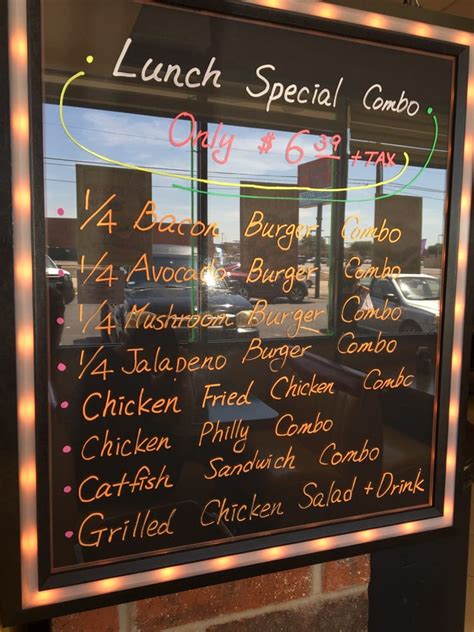 Lunch Special Combo
Only $6.39 + TAX
1/4 Bacon Burger Combo
1/4 Avocado Burger Combo
1/4 Mushroom Burger Combo
1/4 Jalapeno Burger Combo
Chicken Fried Chicken Combo
Chicken Philly Combo
Catfish Sandwich Combo
Grilled Chicken Salad + Drink